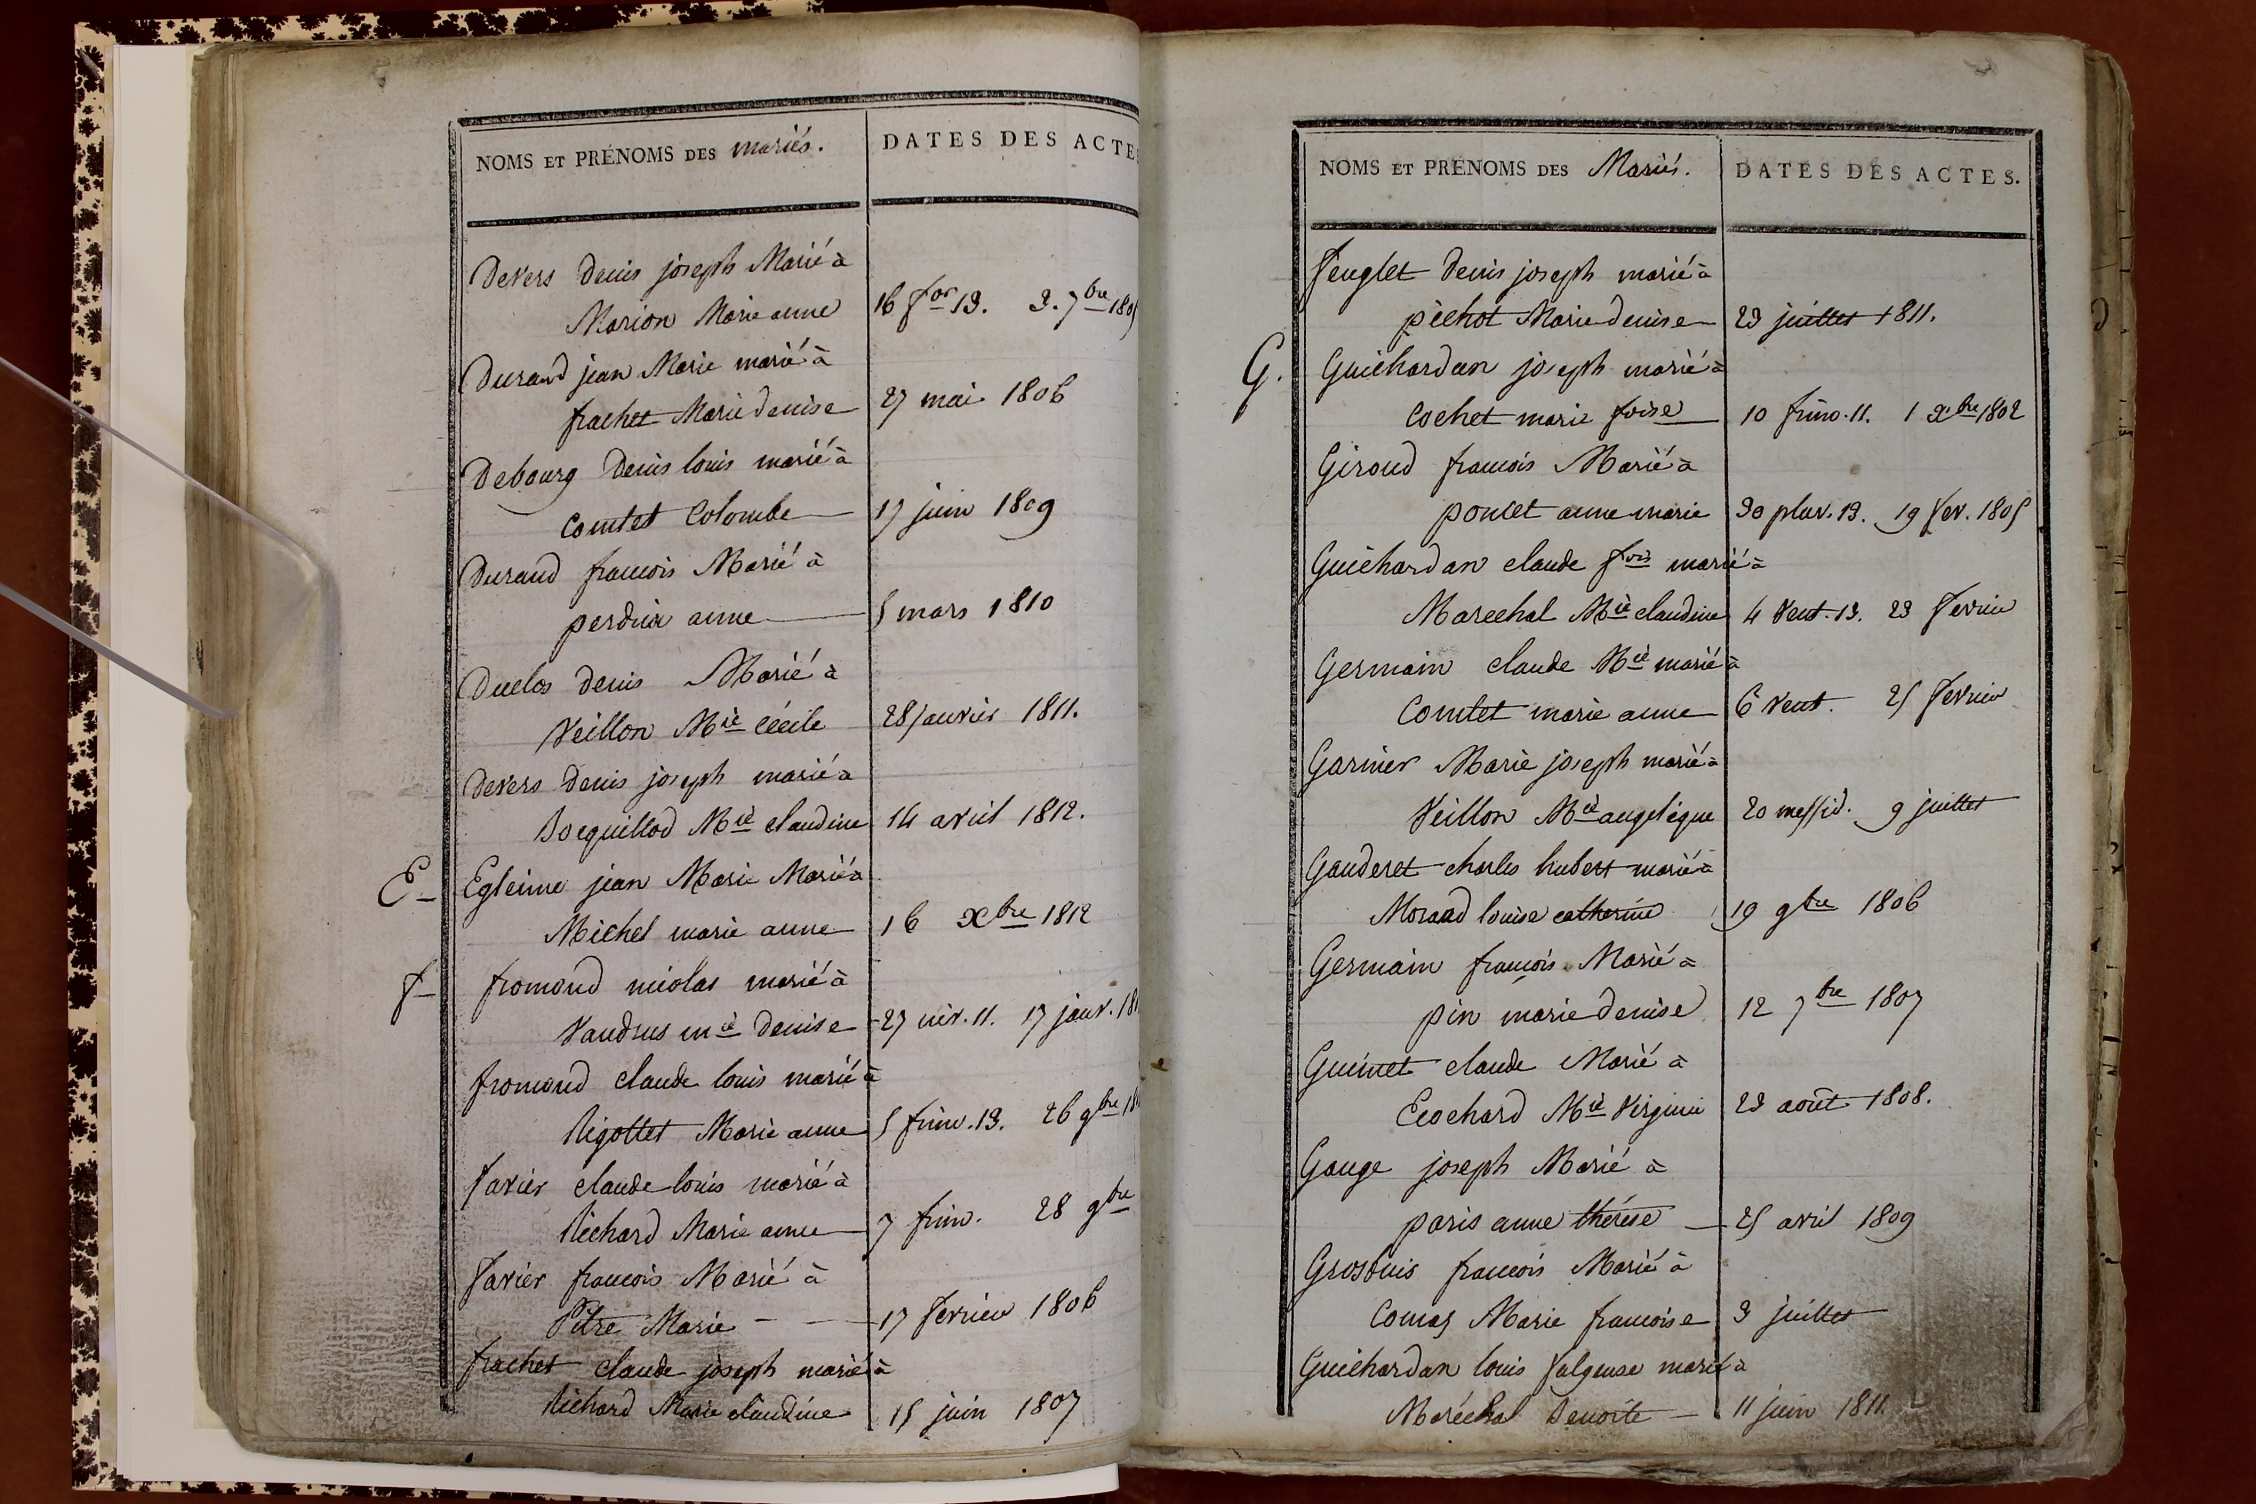 NOMS ET PRÉNOMS DES mariés. DATES DES ACTE
Devers denis joseph Marié à
Marion Marie anne 16 for 13. 3. 7bre 180
Durand jean Marie marié à
frachet Marie denise 27 mai 1806
Debourg denis louis marié à
Comtet Colombe 17 juin 1809
Durand francois Marié à
perdrix anne 5 mars 1810
Duclos denis Marié à
Veillon Mie Cécile 28 janvier 1811.
Devers denis joseph marié à
Bocquillod Mie claudine 14 avril 1812.
E Egleime jean Marie Marié à
Michel marie anne 16 Xbre 1812
f fromond nicolas marié à
Vandrus mie denise 27 niv. 11. 17 janv. 18
fromond claude louis marié à
Rigottet Marie anne 5 frim. 13. 26 9bre 18
Favier claude louis marié à
Richard Marie anne 7 frim. 28 9bre
Favier francois Marié à
Pitre Marie 17 fevrier 1806
frachet claude joseph marié à
Richard Marie claudine 15 juin 1807
NOMS ET PRÉNOMS DES Mariés. DATES DES ACTES.
Feuglet denis joseph marié à
péchot Marie denise 23 juillet 1811.
G. Guichardan joseph marié à
Cochet marie foise 10 frim. 11. 1 Xbre 1802
Giroud francois Marié à
poncet anne marie 30 pluv. 13. 19 fev. 1805
Guichardan claude fois marié à
Marechal Mie claudine 4 Vent. 13. 23 fevrier
Germain claude Mie marié à
Comtet marie anne 6 Vent. 25 fevrier
Garnier Marie joseph marié à
Veillon Mie angelique 20 messid. 9 juillet
Gauderet charles hubert marié à
Morand louise catherine 19 9bre 1806
Germain françois Marié à
pin marie denise 12 7bre 1807
Guinet claude Marié à
Ecochard Mie Virginie 23 août 1808.
Gauge joseph Marié à
paris anne thérése 25 avril 1809
Grosouis francois Marié à
Comas Marie francoise 3 juillet
Guichardan louis fulgense marié à
Maréchal Benoite 11 juin 1811